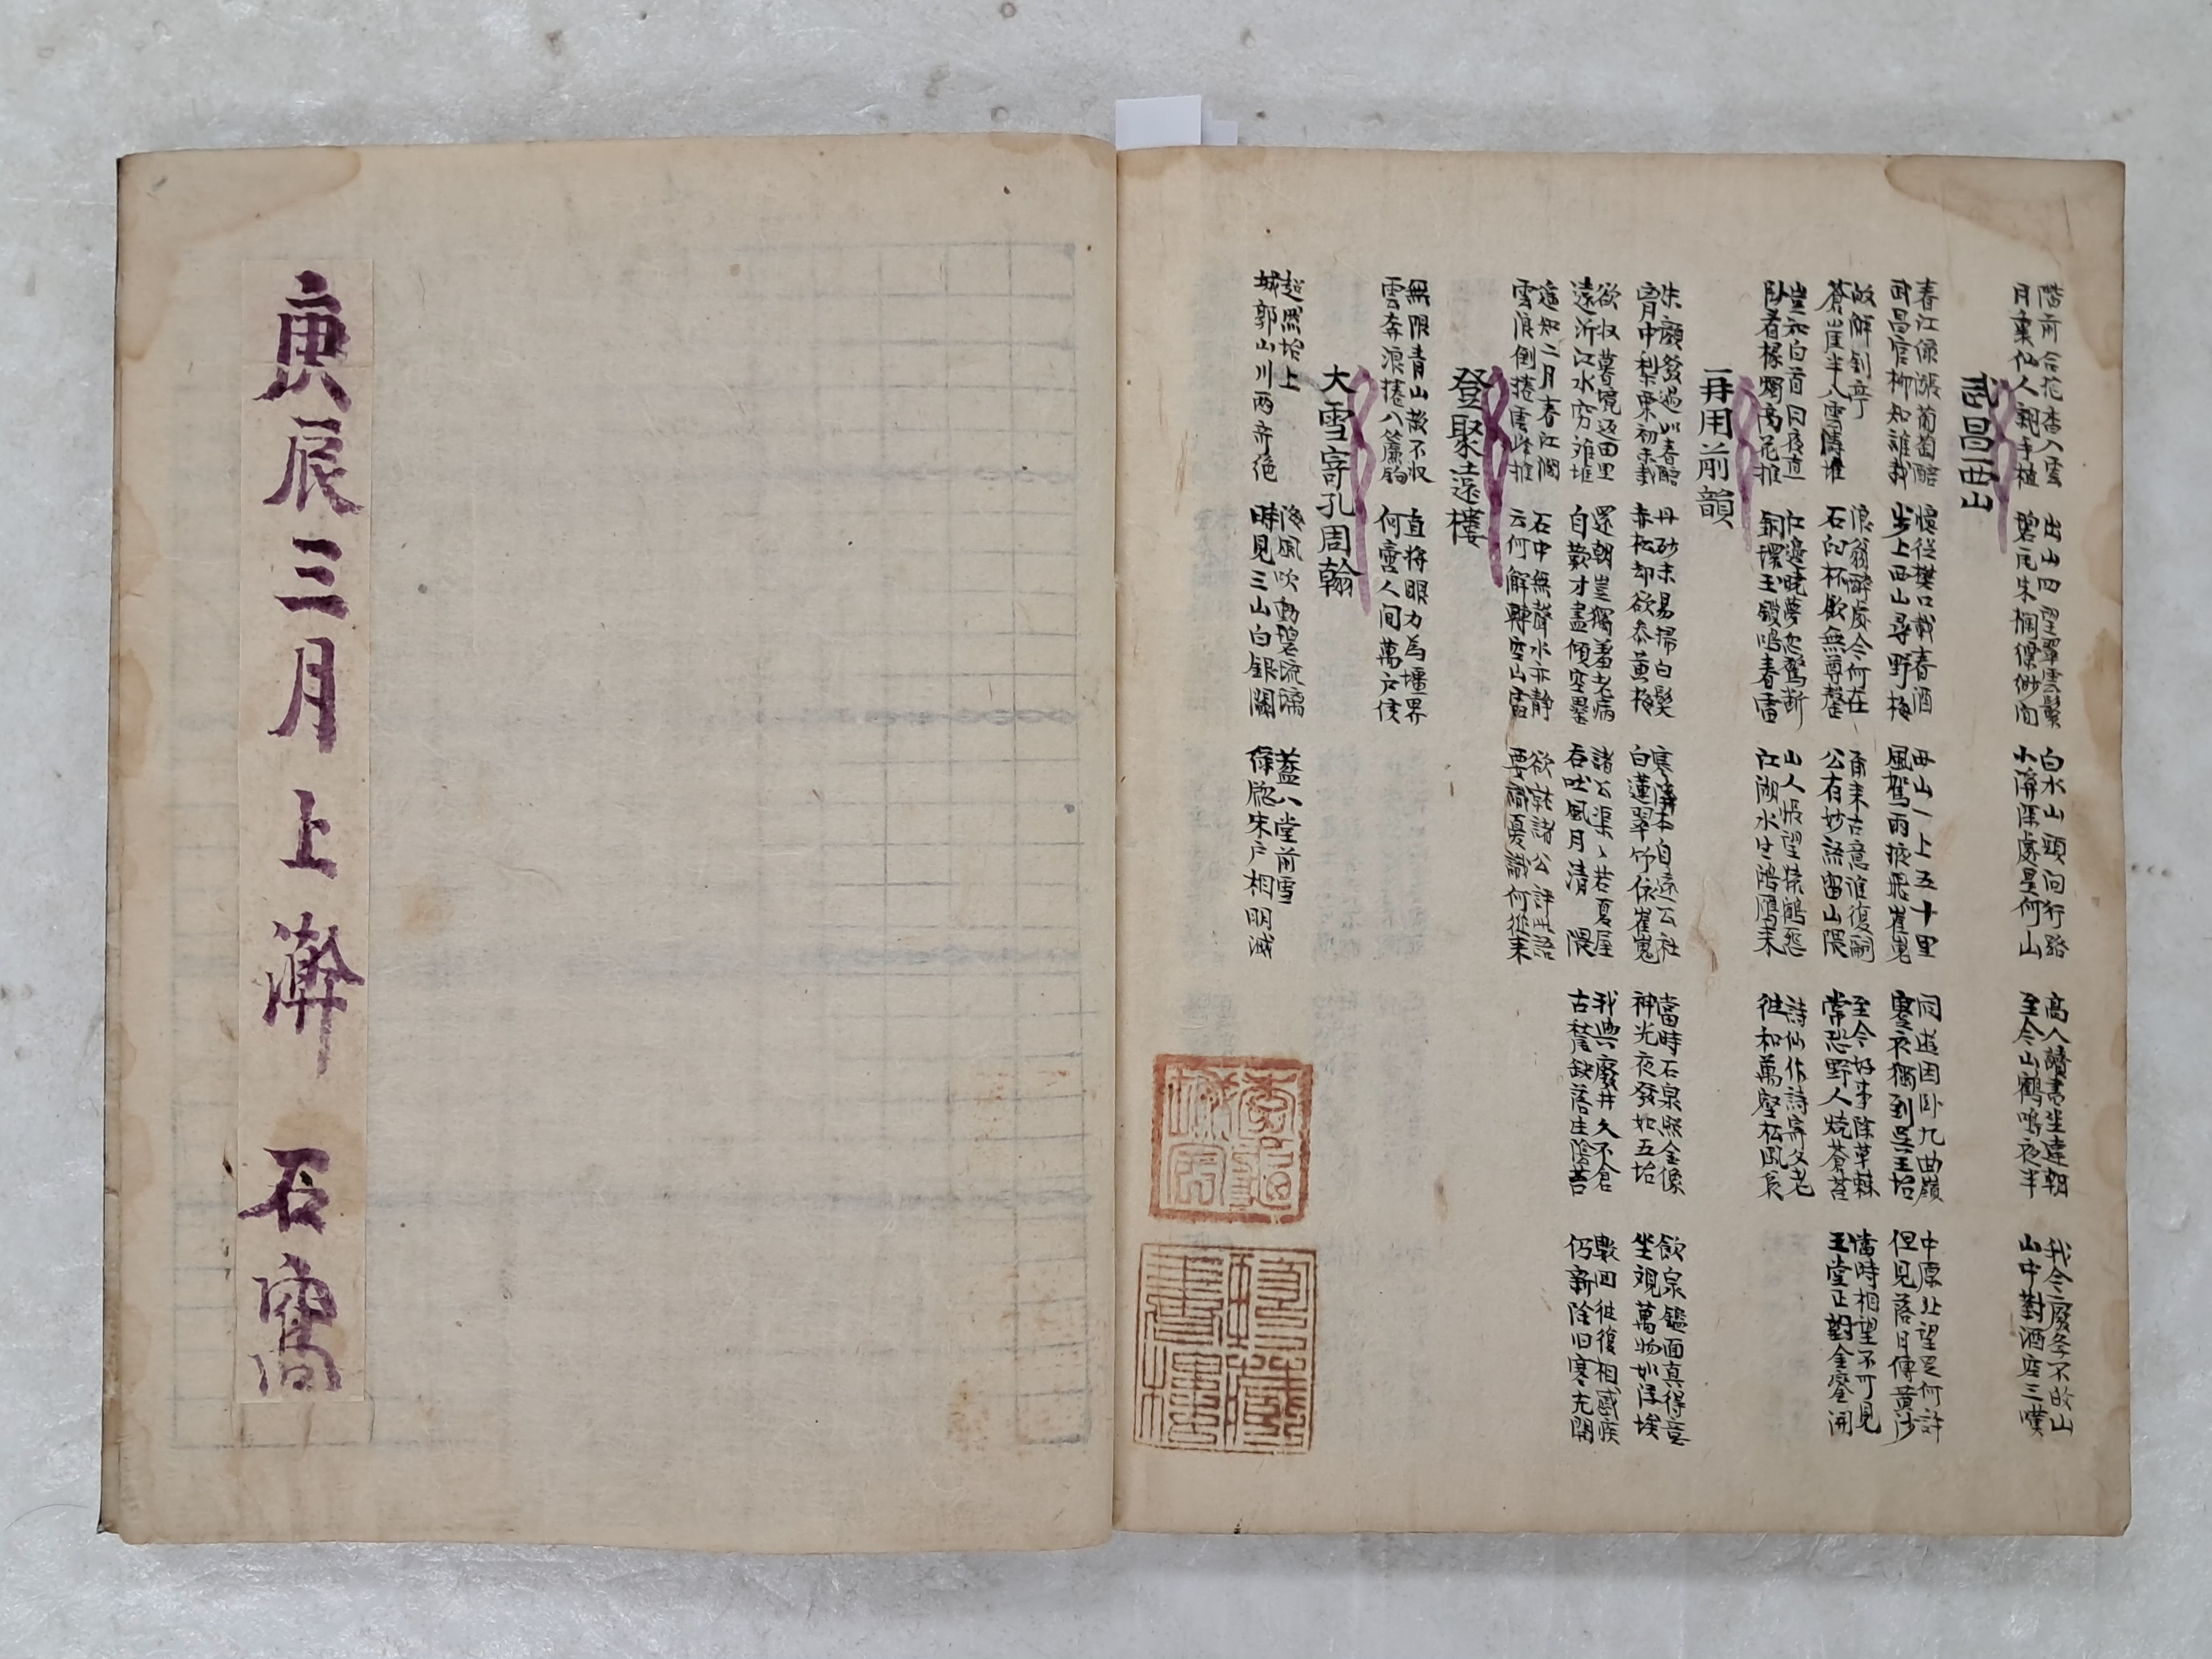 階前合抱香入雲
月裏仙人親手植
出山四望翠雲鬟
碧瓦朱欄縹緲間
白水山頭問行路
小溪深處是何山
高人讀書坐達朝
至今山鶴鳴夜半
我今廢學不故山
山中對酒空三嘆
武昌西山
春江綠漲葡萄醅
武昌官柳知誰栽
憶從樊口載春酒
步上西山尋野梅
西山一上五十里
風駕兩掖飛崔嵬
同遊困臥九曲嶺
褰衣獨到吳王坮
中原北望是何許
但見落日傳黃沙
故解劍亭
蒼崖半入雪濤堆
浪翁醉處今何在
石臼杯飲無尊罍
爾來古意誰復嗣
公有妙語留山隈
至今好事除草棘
常恐野人燒蒼苔
當時相望不可見
玉堂正對金鑾開
豈知白首同夜直
臥看椽燭高花摧
江邊曉夢忽驚斷
銅環玉鎖鳴春雷
山人帳望猿鶴怨
江湖水生鴻鴈來
詩仙作詩寄父老
往和萬壑松風哀
再用前韻
朱顏發過如春醅
胷中梨棗初未栽
丹砂未易掃白髮
赤松却欲參黃梅
寒溪本自遠公社
白蓮翠竹依崔嵬
當時石泉照金像
神光夜發如五坮
飲泉鑑面真得意
坐視萬物如浮埃
欲收暮境返田里
遠泝江水窮離堆
還朝豈獨羞老病
自歎才盡傾空罍
諸公渠々若夏屋
吞吐風月清 隈
我與廢井久不食
古甃缺落生陰苔
數回往復相感疾
仍新除旧寒光開
遙知二月春江濶
雪浪倒捲雲峰摧
石中無聲水亦靜
云何解轉空山雷
欲就諸公評此語
要識憂 何從來
登聚遠樓
無限青山散不收
雲奔浪捲入簾鉤
直將眼力為疆界
何啻人間萬戶侯
大雪寄孔周翰
超然坮上
城郭山川兩奇絕
海風吹動碧琉璃
時見三山白銀闕
蓋公堂前雪
綠牕朱戶相明滅
庚辰三月上澣 石窩